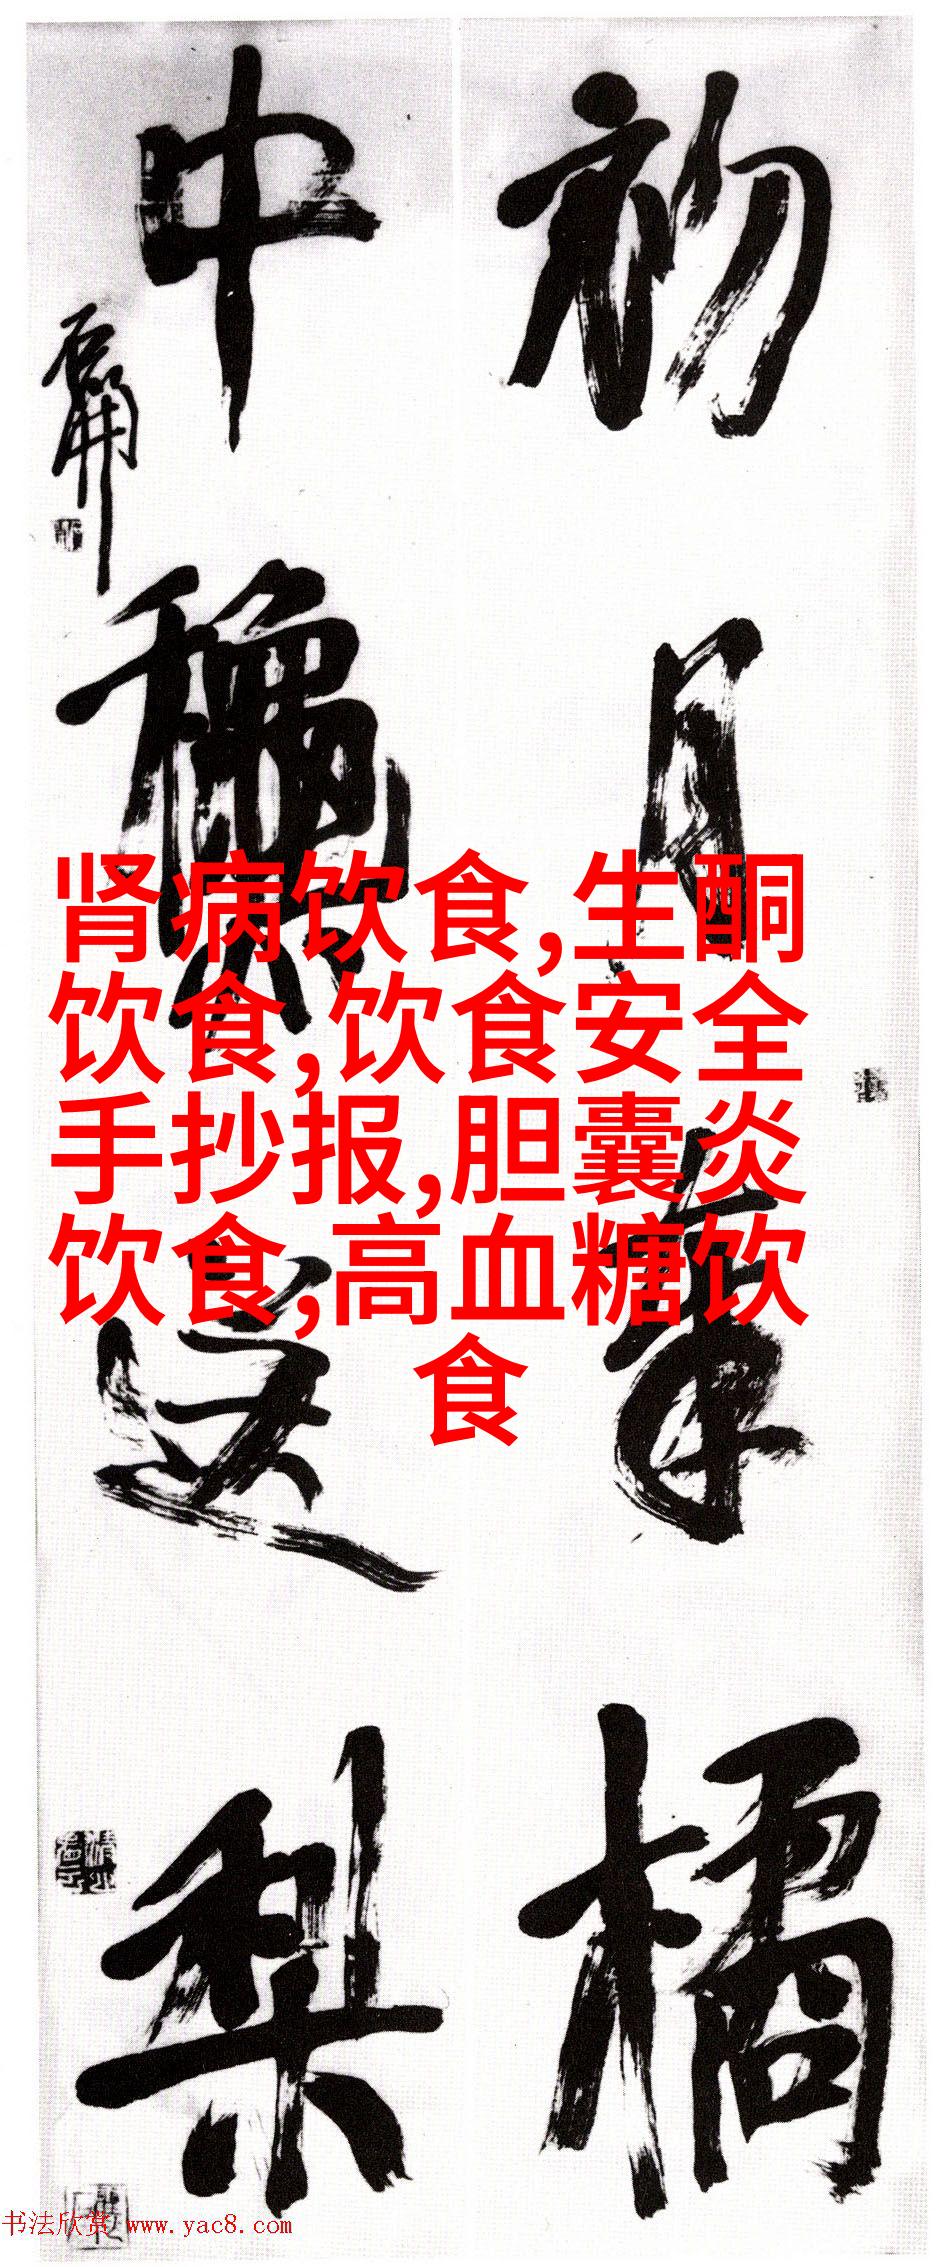 初月橘
中梨
肾病饮食,生酮
饮食,饮食安全
手抄报,胆囊炎
饮食,高血糖饮
食
书法欣赏 www.yac8.com